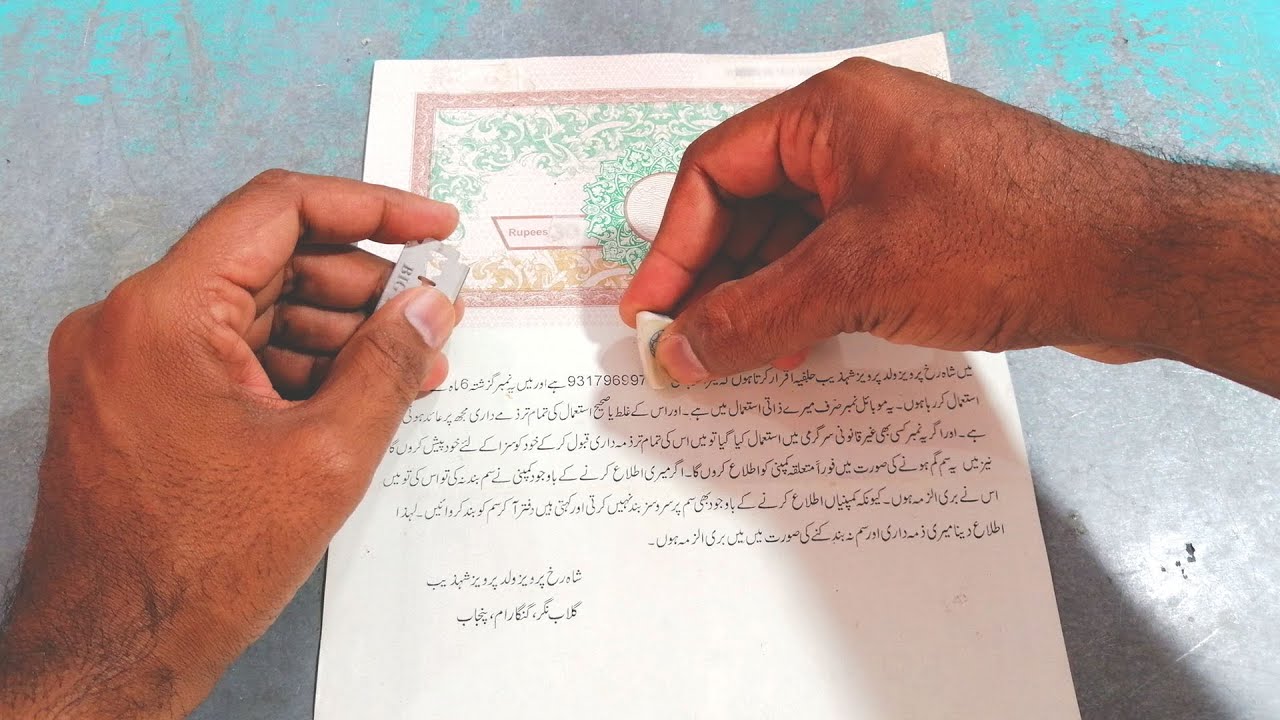 Rupees
BIG
میں شاہ رخ پرویز ولد پرویز شہذیب حلفیہ اقرار کرتا ہوں کہ 931796997 ہے اور میں یہ نمبر گزشتہ 6 ماہ سے
استعمال کر رہا ہوں۔ یہ موبائل نمبر صرف میرے ذاتی استعمال میں ہے۔ اور اس کے غلط یا صحیح استعمال کی تمام تر ذمے داری مجھ پر عائد ہوتی
ہے۔ اور اگر یہ نمبر کسی بھی غیر قانونی سرگرمی میں استعمال کیا گیا تو میں اس کی تمام تر ذمہ داری قبول کر کے خود کو سزا کے لئے خود پیش کروں گا
نیز میں یہ سم گم ہونے کی صورت میں فوراً متعلقہ کمپنی کو اطلاع کروں گا۔ اگر میری اطلاع کرنے کے باوجود کمپنی نے سم بند نہ کی تو اس کی تو میں
اس نے بری الزمہ ہوں۔ کیونکہ کمپنیاں اطلاع کرنے کے باوجود بھی سم پر سروسز بند نہیں کرتی اور کہتی ہیں دفتر آ کر سم کو بند کروائیں۔ لہذا
اطلاع دینا میری ذمہ داری اور سم نہ بند کنے کی صورت میں میں بری الزمہ ہوں۔
شاہ رخ پرویز ولد پرویز شہذیب
گلاب نگر، گنگا رام، پنجاب